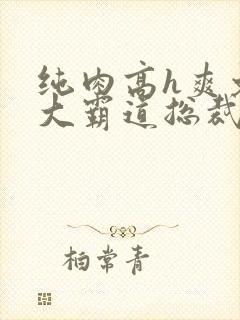 纯肉高h爽文
大霸道总裁
柏常青